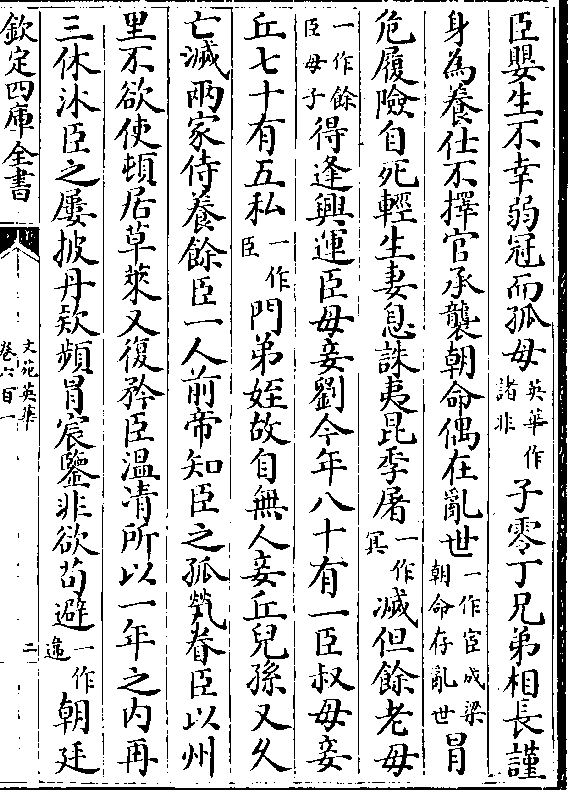 臣嬰生不幸弱冠而孤母英華作諸非子零丁兄弟相長謹
身為養仕不擇官承襲朝命偶在亂世一作宦成梁朝命存亂世冒
危履險自死輕生妻息誅夷昆季屠一作冥滅但餘老母
一作餘臣母子得逢興運臣母妾劉今年八十有一臣叔母妾
丘七十有五私一作臣門弟姪故自無人妾丘兒孫又久
亡滅兩家侍養餘臣一人前帝知臣之孤煢眷臣以州
里不欲使頓居草萊又復矜臣溫凊所以一年之內再
三休沐臣之屢披丹欵頻冒宸鑒非欲苟避一作違朝廷
欽定四庫全書
文苑英華
卷六百一
二